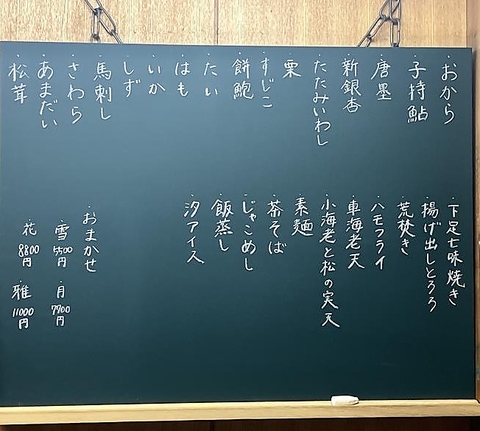 ・おから
・子持鮎
・唐墨
・新銀杏
・たたみいわし
・栗
・すじこ
・餅鮑
・たい
・はも
・いか
・しず
・馬刺し
・さわら
・あまだい
・松茸
・下足七味焼き
・揚げ出しとろろ
・荒焚き
・ハモフライ
・車海老天
・小海老と松の実天
・素麺
・茶そば
・じゃこめし
・飯蒸し
・汐アイス
・おまかせ
・雪 5500円
・月 7700円
・花 8800円
・雅 11000円